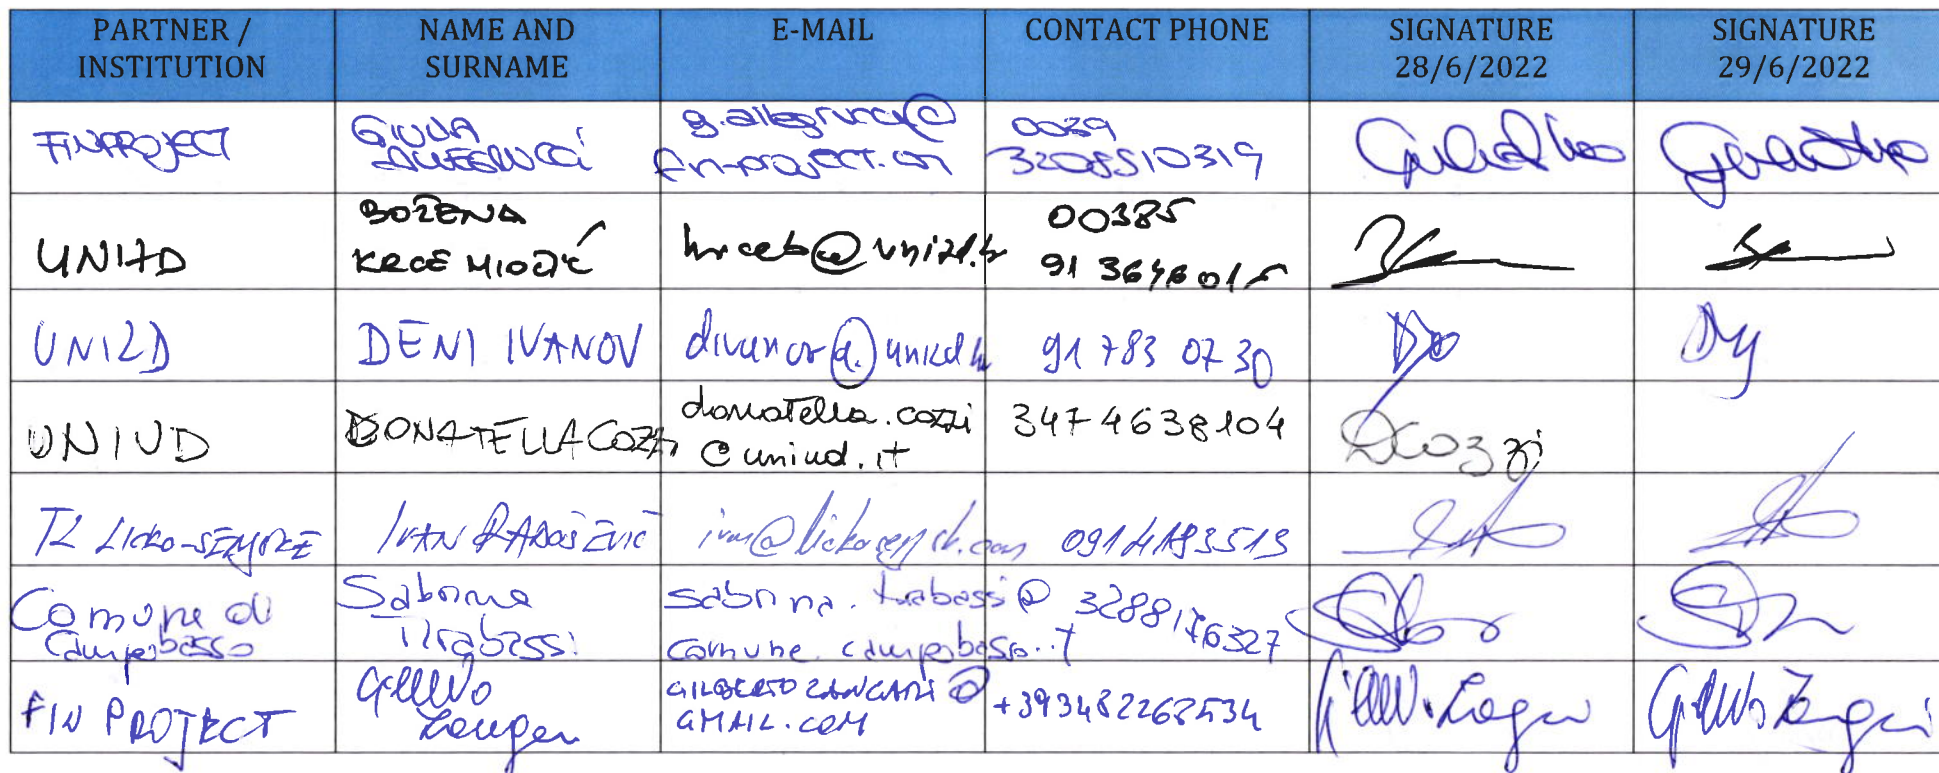 PARTNER / INSTITUTION
NAME AND SURNAME
E-MAIL
CONTACT PHONE
SIGNATURE 28/6/2022
SIGNATURE 29/6/2022
FINPROJECT
GIULIA ALLEGRUCCI
g.allegrucci@
fin-project.com
0039
3208510319
UNIZD
BOŽENA
KRCE MIOČIĆ
hrceb@unizd.hr
00385
91 3646015
UNIZD
DENI IVANOV
divanov@unizd.hr
91 783 0730
UNIUD
DONATELLA COZZI
donatella.cozzi
@uniud.it
347 4638104
DCozzi
TZ LICKO-SENJSKE
IVAN RADOŠEVIĆ
0914193513
Comune di
Campobasso
Sabrina
Tirabassi
sabrina.tirabassi@
comune.campobasso.it
3288176327
FIN PROJECT
GILBERTO ZANGARI@
GMAIL.COM
+393482268534